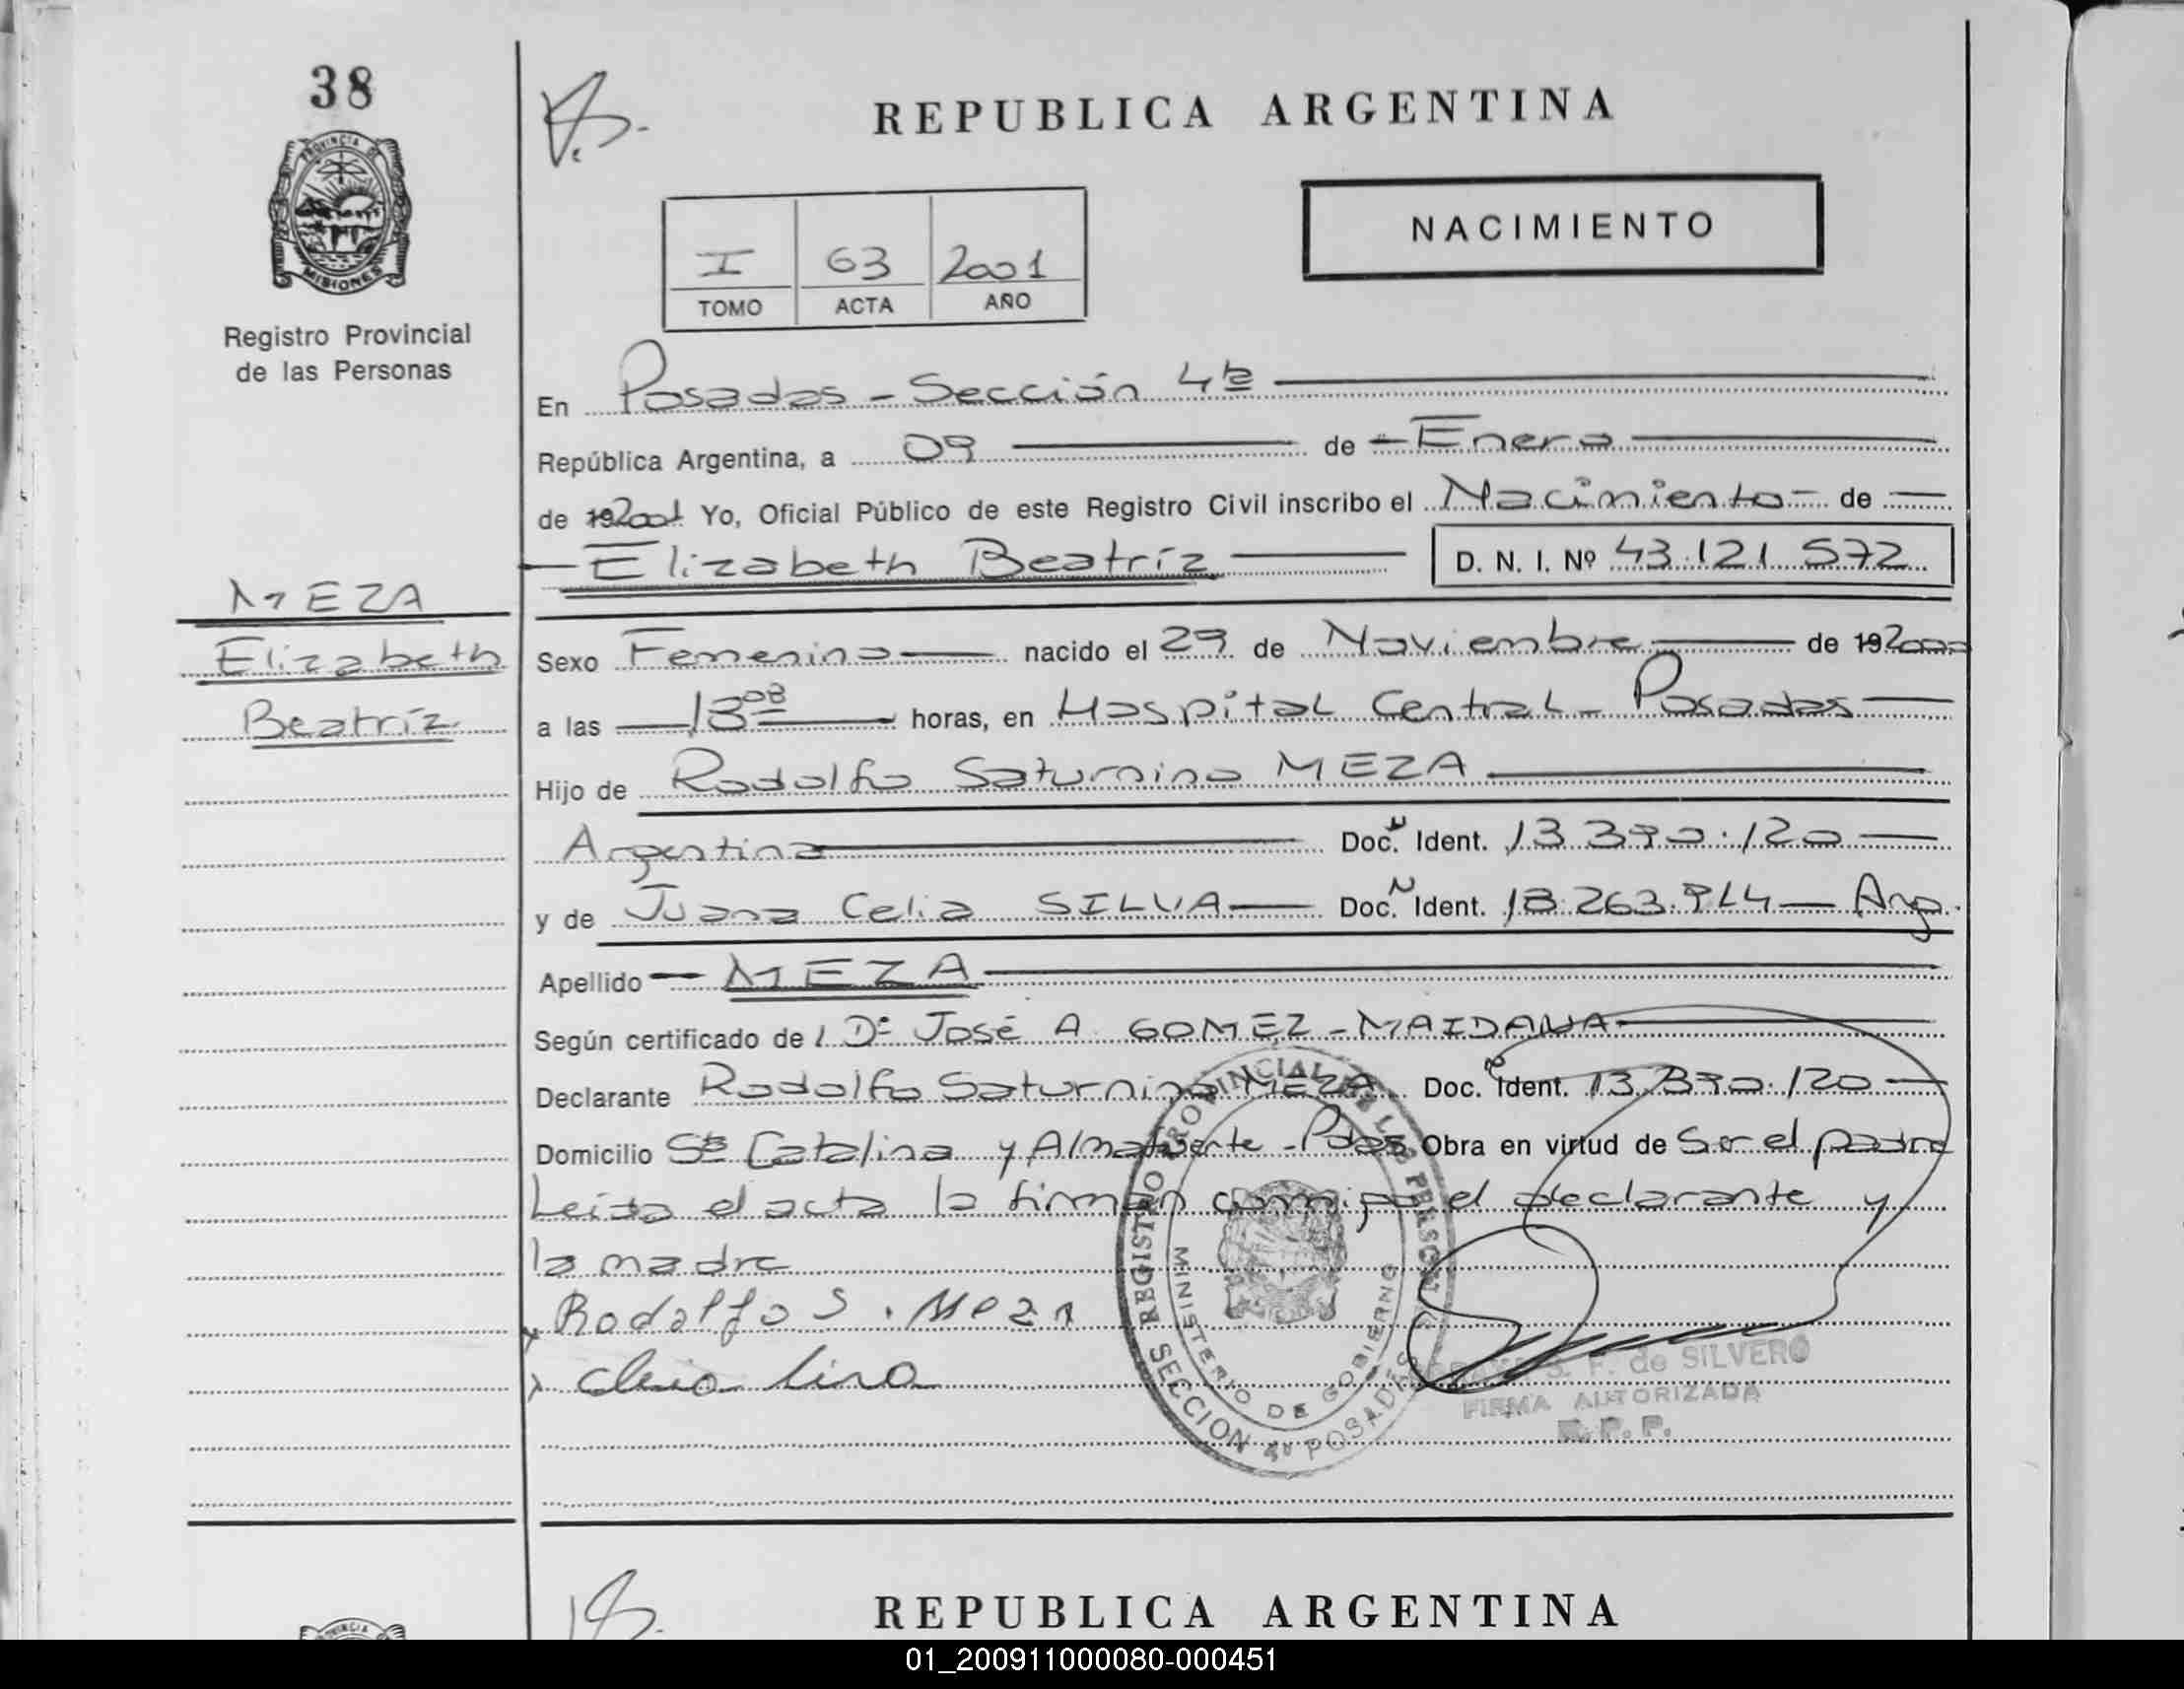 38
REPUBLICA ARGENTINA
PROVINCIA DE
MISIONES
NACIMIENTO
I 63 2001
TOMO ACTA AÑO
Registro Provincial
de las Personas
En Posadas - Sección 4ta
República Argentina, a 09 de Enero
de 192001 Yo, Oficial Público de este Registro Civil inscribo el Nacimiento de
Elizabeth Beatríz D. N. I. Nº 43.121.572
MEZA
Elizabeth
Beatríz
Sexo Femenino nacido el 29 de Noviembre de 192000
a las 13 08 horas, en Hospital Central - Posadas
Hijo de Rodolfo Saturnino MEZA
Argentina Doc. Ident. 13.390.120
y de Juana Celia SILVA Doc. Ident. Arg.
Apellido MEZA
Según certificado de l Dr José A. GOMEZ - MAIDANA
Declarante Rodolfo Saturnino MEZA Doc. Ident. 13.390.120
Domicilio Sta Catalina y Almafuerte - Pdas Obra en virtud de Ser el padre
Leída el acta la firman conmigo el declarante y
la madre
Rodolfo S. Meza
REGISTRO PROVINCIAL DE LAS PERSONAS
MINISTERIO DE GOBIERNO
SECCION 4ta POSADAS
F. de SILVERO
FIRMA AUTORIZADA
R. P. P.
REPUBLICA ARGENTINA
01_200911000080-000451